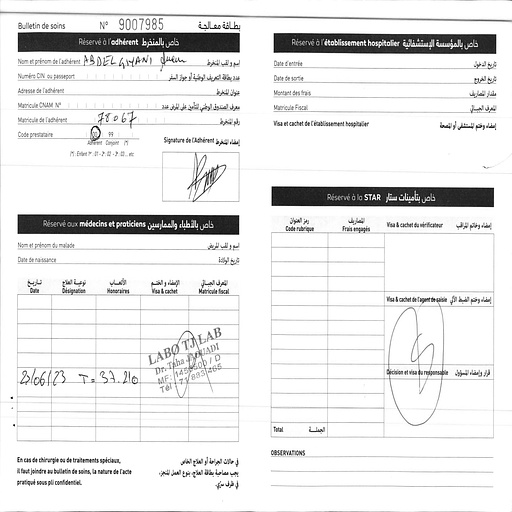 Bulletin de soins N° 9007985 بطاقة معالجة
Réservé à l'adhérent خاص بالمنخرط
Nom et prénom de l'adhérent ABDELGHANI اسم و لقب المنخرط
Numéro CIN ou passeport عدد بطاقة التعريف الوطنية أو جواز السفر
Adresse de l'adhérent عنوان المنخرط
Matricule CNAM N° معرف الصندوق الوطني للتأمين على المرض عدد
Matricule de l'adhérent 78067 رقم المنخرط
Code prestataire 00 99
Adhérent Conjoint (*)
(*) Enfant 1er : 01 - 2ème : 02 - 3ème : 03 ... etc
Signature de l'Adhérent إمضاء المنخرط
Réservé aux médecins et praticiens خاص بالأطباء والممارسين
Nom et prénom du malade اسم و لقب المريض
Date de naissance تاريخ الولادة
تاريخ نوعية العلاج الأتعاب الإمضاء و الختم المعرف الجبائي
Date Désignation Honoraires Visa & cachet Matricule fiscal
23/06/23 T = 37.210
LABO TJ LAB
Dr. Taha
En cas de chirurgie ou de traitements spéciaux,
il faut joindre au bulletin de soins, la nature de l'acte
pratiqué sous pli confidentiel.
في حالات الجراحة أو العلاج الخاص
يجب مصاحبة بطاقة العلاج، بنوع العمل المنجز،
في ظرف سري.
Réservé à l'établissement hospitalier خاص بالمؤسسة الإستشفائية
Date d'entrée تاريخ الدخول
Date de sortie تاريخ الخروج
Montant des frais مقدار المصاريف
Matricule Fiscal المعرف الجبائي
Visa et cachet de l'établissement hospitalier إمضاء وختم المستشفى أو المصحة
Réservé à la STAR خاص بتأمينات ستار
رمز العنوان المصاريف
Code rubrique Frais engagés
Visa & cachet du vérificateur إمضاء وخاتم المراقب
Visa & cachet de l'agent de saisie إمضاء وختم الضبط الآلي
Décision et visa du responsable قرار وإمضاء المسؤول
Total الجملة
OBSERVATIONS